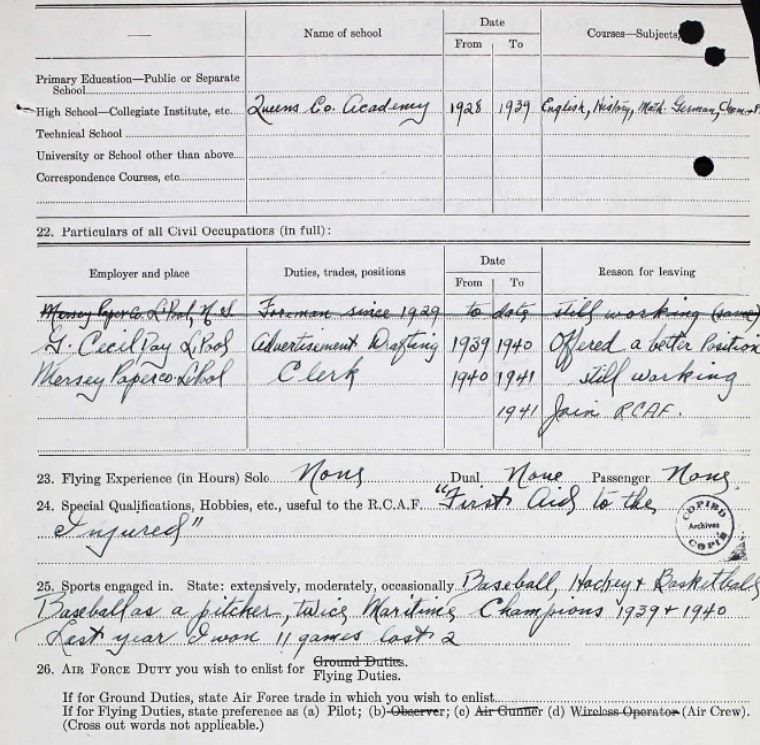 Name of school Date Courses—Subjects,
From To
Primary Education—Public or Separate
School
High School—Collegiate Institute, etc. Queens Co. Academy 1928 1939 English, History, Math. German,
Technical School
University or School other than above
Correspondence Courses, etc.
22. Particulars of all Civil Occupations (in full):
Employer and place Duties, trades, positions Date Reason for leaving
From To
Mersey Paper Co. L'Pool, N.S. Foreman since 1929 to date still working (same)
G. Cecil Day L'Pool Advertisement Drafting 1939 1940 Offered a better Position
Mersey Paper Co L'Pool Clerk 1940 1941 still working
1941 Join RCAF.
23. Flying Experience (in Hours) Solo None Dual None Passenger None
24. Special Qualifications, Hobbies, etc., useful to the R.C.A.F. "First Aid to the
Injured"
COPIED
Archives
COPIE
25. Sports engaged in. State: extensively, moderately, occasionally Baseball, Hockey & Basketball
Baseball as a pitcher, twice Maritime Champions 1939 & 1940
Last year I won 11 games lost 2
26. AIR FORCE DUTY you wish to enlist for Ground Duties.
Flying Duties.
If for Ground Duties, state Air Force trade in which you wish to enlist
If for Flying Duties, state preference as (a) Pilot; (b) Observer; (c) Air Gunner (d) Wireless Operator (Air Crew).
(Cross out words not applicable.)